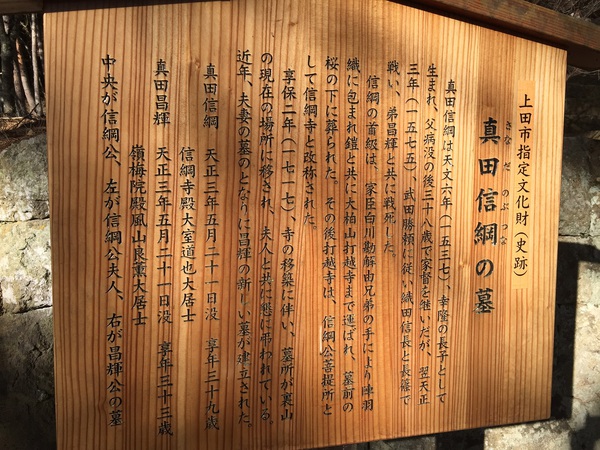 上田市指定文化財（史跡）
真田信綱の墓
さなだのぶつな
真田信綱は天文六年（一五三七）、幸隆の長子として
生まれ、父病没の後三十八歳で家督を継いだが、翌天正
三年（一五七五）、武田勝頼に従い織田信長と長篠で
戦い、弟昌輝と共に戦死した。
信綱の首級は、家臣白川勘解由兄弟の手により陣羽
織に包まれ鎧と共に大柏山打越寺まで運ばれ、墓前の
桜の下に葬られた。その後打越寺は、信綱公菩提所と
して信綱寺と改称された。
享保二年（一七一七）、寺の移築に伴い、墓所が裏山
の現在の場所に移され、夫人と共に懇に弔われている。
近年、夫妻の墓のとなりに昌輝の新しい墓が建立された。
真田信綱 天正三年五月二十一日没 享年三十九歳
信綱寺殿大室道也大居士
真田昌輝 天正三年五月二十一日没 享年三十三歳
嶺梅院殿風山良薫大居士
中央が信綱公、左が信綱公夫人、右が昌輝公の墓